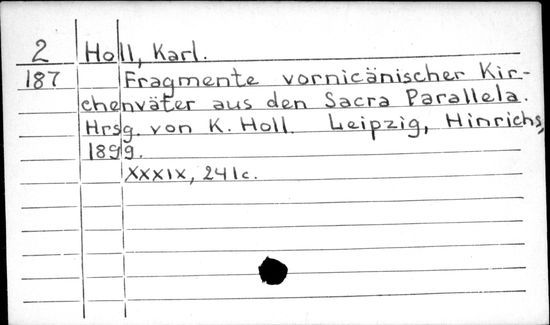 2 Holl, Karl.
187 Fragmente vornicänischer Kir-
chenväter aus den Sacra Parallela.
Hrsg. von K. Holl. Leipzig, Hinrichs,
1899.
XXXIX, 241c.